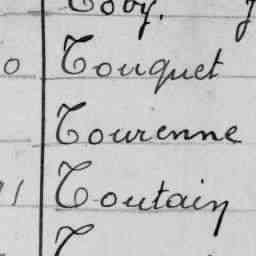 Toby.
0 Touquet
Tourenne
11 Toutain